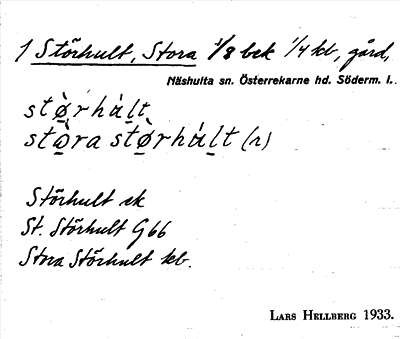 1 Störhult, Stora 1/8 bek 1/4 kb, gård,
Näshulta sn. Österrekarne hd. Söderm. l.
stø̀rhúlt
stòra stø̀rhúlt (r)
Störhult ek
St. Störhult G 66
Stora Störhult kb.
LARS HELLBERG 1933.